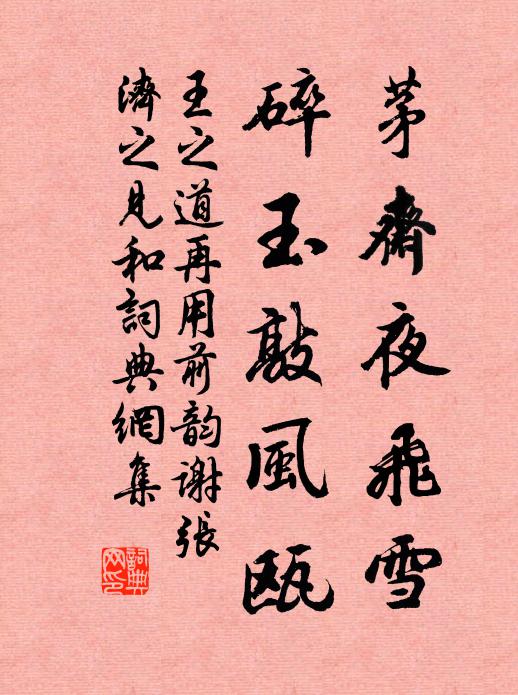 茅齋夜飛雪
碎玉敲風甌
王之道再用前韵謝張
濟之見和詞典網集
詞典網印